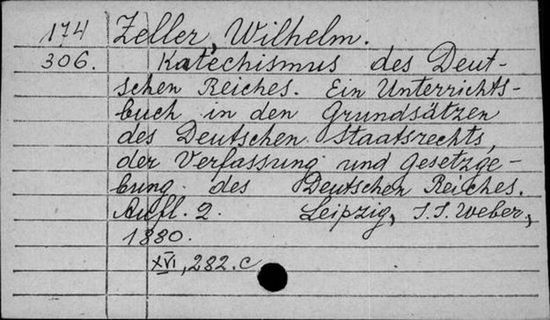 174 Zeller, Wilhelm.
306. Katechismus des Deut-
schen Reiches. Ein Unterrichts-
buch in den Grundsätzen
des Deutschen Staatsrechts,
der Verfassung und Gesetzge-
bung des Deutschen Reiches.
Aufl. 2. Leipzig, J. J. Weber,
1880.
XVI, 282. c